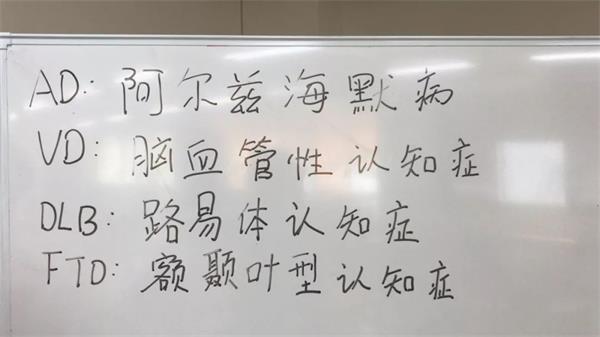 AD: 阿尔兹海默病
VD: 脑血管性认知症
DLB: 路易体认知症
FTD: 额颞叶型认知症